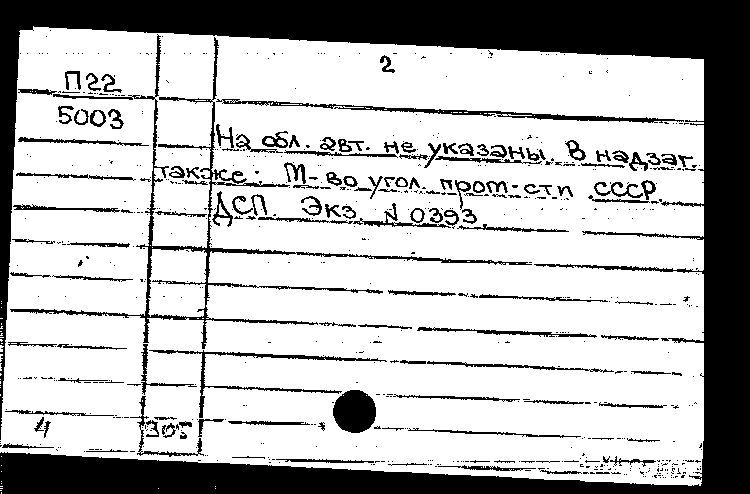 2
П22
5003
На обл. авт. не указаны. В надзаг.
также: М-во угол. пром-сти СССР.
ДСП. Экз. № 0393.
4
305